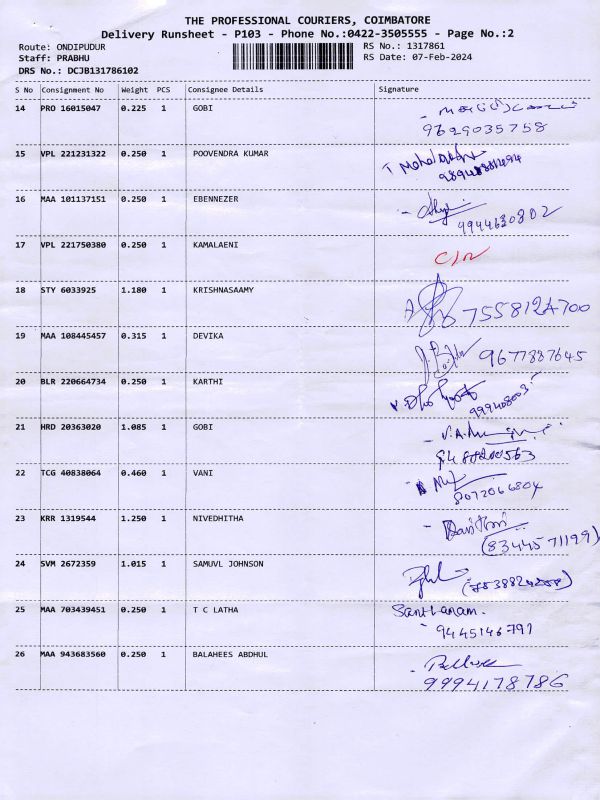 THE PROFESSIONAL COURIERS, COIMBATORE
Delivery Runsheet - P103 - Phone No.:0422-3505555 - Page No.:2
Route: ONDIPUDUR RS No.: 1317861
Staff: PRABHU RS Date: 07-Feb-2024
DRS No.: DCJB131786102
S No Consignment No Weight PCS Consignee Details Signature
14 PRO 16015047 0.225 1 GOBI
9629035758
15 VPL 221231322 0.250 1 POOVENDRA KUMAR
16 MAA 101137151 0.250 1 EBENNEZER
9944630802
17 VPL 221750380 0.250 1 KAMALAENI
18 STY 6033925 1.180 1 KRISHNASAAMY
19 MAA 108445457 0.315 1 DEVIKA
9677887645
20 BLR 220664734 0.250 1 KARTHI
21 HRD 20363020 1.085 1 GOBI
22 TCG 40838064 0.460 1 VANI
8072066804
23 KRR 1319544 1.250 1 NIVEDHITHA
(8344571199)
24 SVM 2672359 1.015 1 SAMUVL JOHNSON
25 MAA 703439451 0.250 1 T C LATHA
Santhanam.
9445146791
26 MAA 943683560 0.250 1 BALAHEES ABDHUL
9994178786